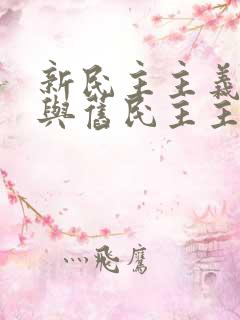 新民主主義
與舊民主主
灬飛鷹